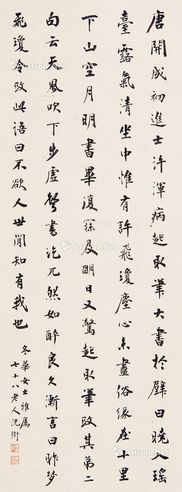 唐開成初進士許渾病起取筆大書於壁曰曉入瑤
臺露氣清坐中惟有許飛瓊塵心未盡俗緣在十里
下山空月明書畢復寐及明日又驚起取筆改其第二
句云天風吹下步虛聲書訖兀然如醉良久漸言曰昨夢
飛瓊令改此語曰不欲人世聞知有我也
冬華女士雅屬
七十八老人沈衛